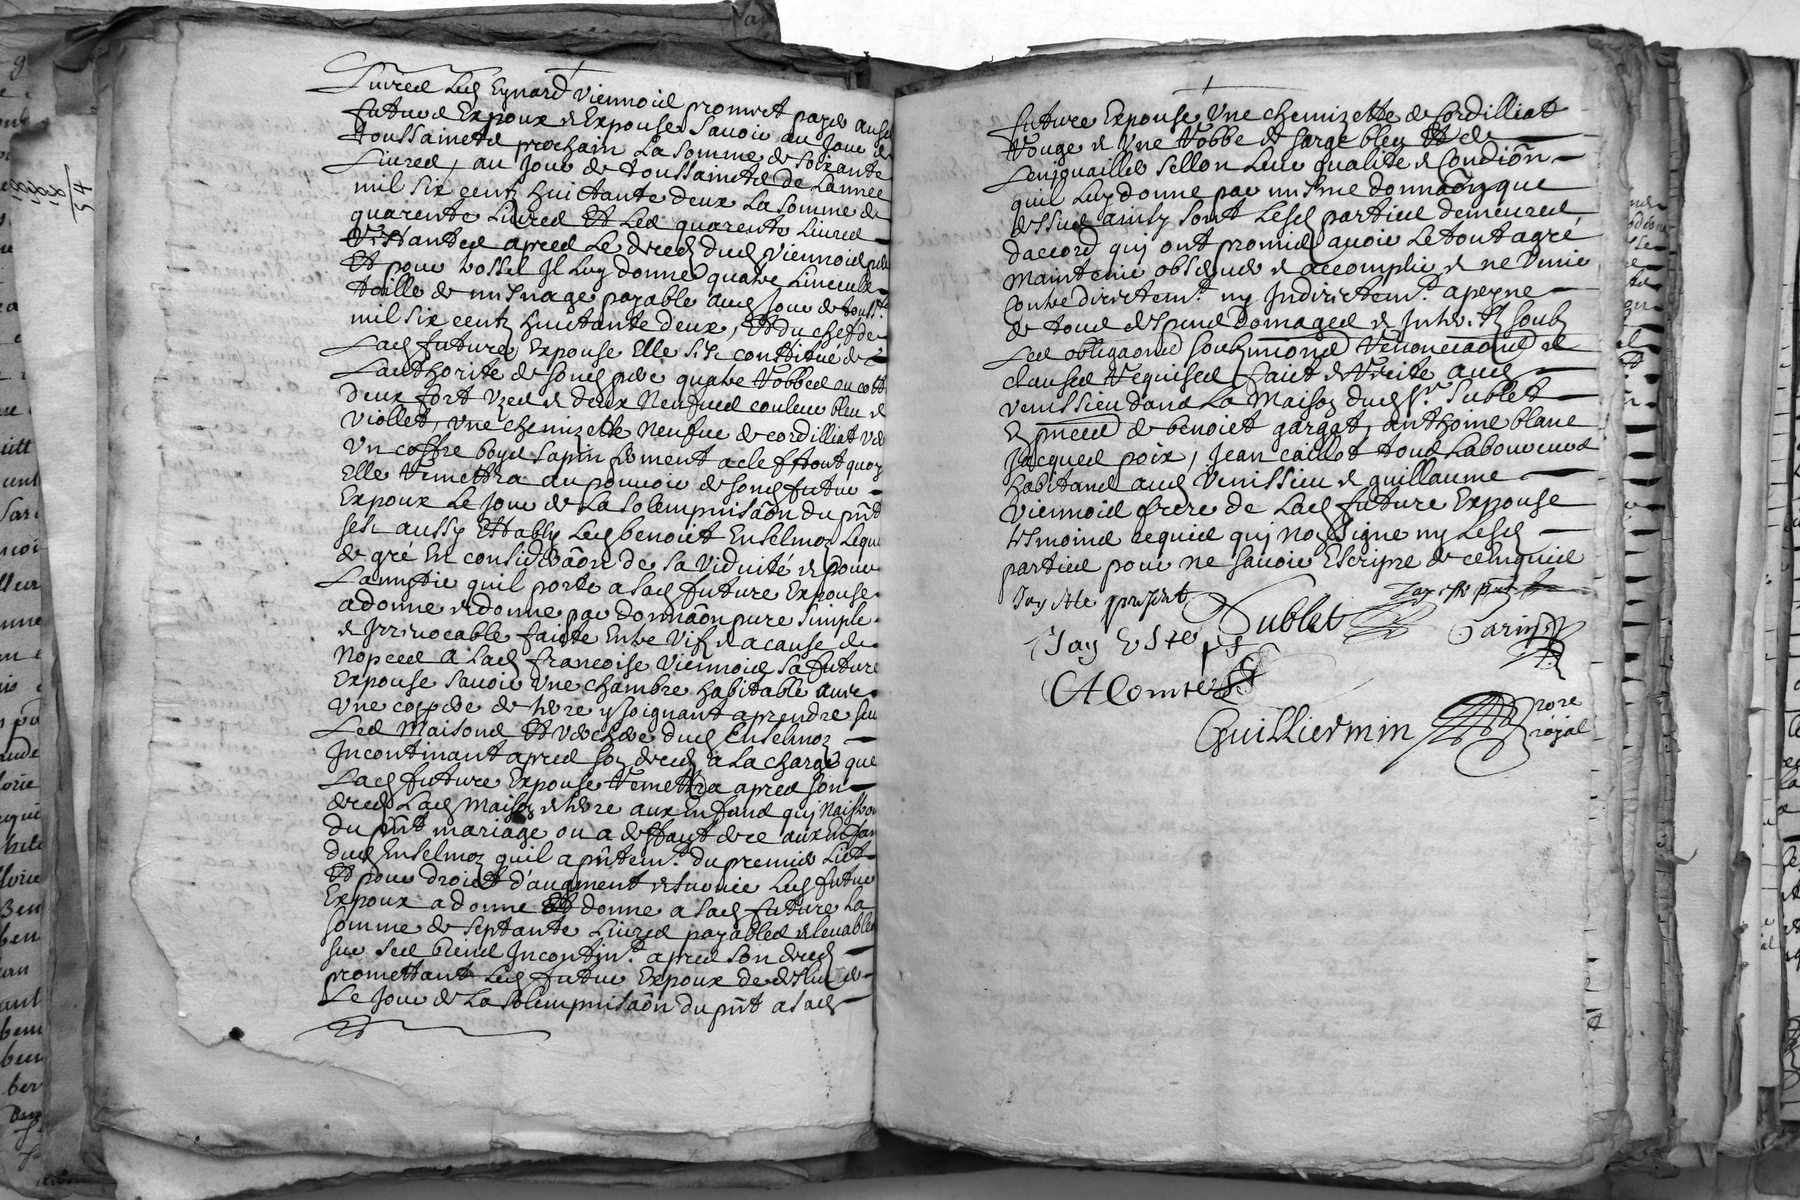 Livres Led Eynard Viennois promet payer aus
futurs Expoux & Expouse Savoir au Jour de
toussaincts prochain La somme de soixante
Livres, au Jour de toussaincts de Lannee
mil six centz huictante deux La somme de
quarente Livres Et Les quarente Livres
restantes apres Le deces dud Viennois
Et pour trossel Il Luy donne quatre Linceulx
toille de mesnage payable aud Jour de touss.ts
mil six centz huictante deux, Et du chef de
Lad future Expouse Elle sest constitué de
Lauthorite de sond pere quatre Robbes
deux fort Uzes & deux Neufves couleur bleu &
viollet, une chemizette Neufve de cordilliat
Un coffre boys sapin ferment a clef
Elle Remettra au pouvoir de sond futur
Expoux Le Jour de La solempnisaôn du pnt
sest aussy Estably Led benoict Enselmoz Lequel
de gre En considerâôn de sa Viduité & pour
Lamytie quil porte a sad future Expouse
a donne & donne par donnâôn pure simple
& Irrevocable faicte Entre Vifz & a cause de
Nopces a sad francoise Viennois sa future
Expouse savoir Une chambre habitable avec
Une couppee de terre y joignant a prendre sur
Les Maisons Et verchere dud Enselmoz
Incontinant apres son deces a La charge que
Lad future Expouse Remettra apres son
deces Lad Maison & terre aux Enfans qui Naistront
du pnt mariage ou a deffaut dece aux Enfans
dud Enselmoz quil a pntem.t du premier Lict
Et pour droict d'augment & survie Led futur
Expoux a donne Et donne a sad future La
somme de septante Livres payables & levables
sur ses biens Incontin.t apres son deces
promettant Led futur Expoux de
Le Jour de La solempnisaôn du pnt a sad
future Expouse Une chemizette de Cordilliat
Rouge & Une Robbe de sarge bleu Et de
Lenjouailler sellon Leur qualite & Condiôn
quil Luy donne par mesme donnâôn que
dessus ainsy sont Lesd parties demeures
daccord qui ont promis avoir Le tout a gré
maintenir observer & accomplir & ne Venir
Contre directem.t ny Indirectem.t a peyne
de tous despens domages & Intr.tz soubz
Les obligaons soubzmions Renonciaons &
clauses Requises faict & Recite aud
venissieu dans La Maison dud S.r Sublet
En pnces de benoict gargat, anthoine blanc
Jacques poix, Jean caillot tous Laboureurs
habitans aud Venissieu & guillaume
Viennois frere de Lad future Expouse
tesmoins requis qui Nont Signe ny Lesd
parties pour ne savoir Escripre de ce Enquis
Jay este present Sublet Jay este pnt
Jay Este pt Carin
A Comte
Guilliermin
nore
royal
54